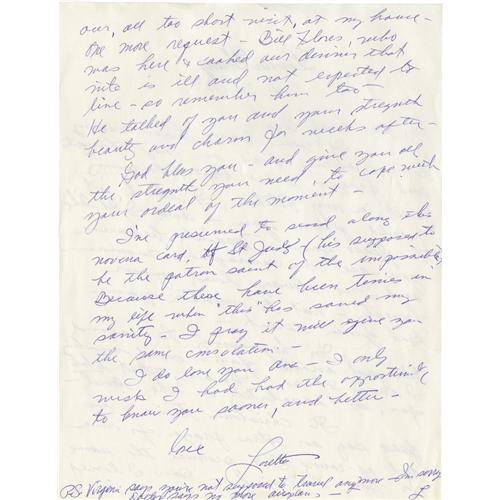 our, all too short visit, at my house -
One more request - Bill Flores, who
was here & cooked our dinner that
nite is ill and not expected to
live - so remember him too -
He talked of you and your strength
beauty and charm for weeks after -
God bless you - and give you all
the strength you need, to cope with
your ordeal of the moment -
I've presumed to send along this
novena card, of St Jude (he's supposed to
be the patron saint of the impossible)
Because there have been times in
my life when "this" has saved my
sanity - I pray it will give you
the same consolation -
I do love you - I only
wish I had had the opportunity
to know you sooner, and better -
Love
Loretta
PS Virginia says you're not supposed to travel anymore - I'm sorry
Doctor says no more airplanes - L